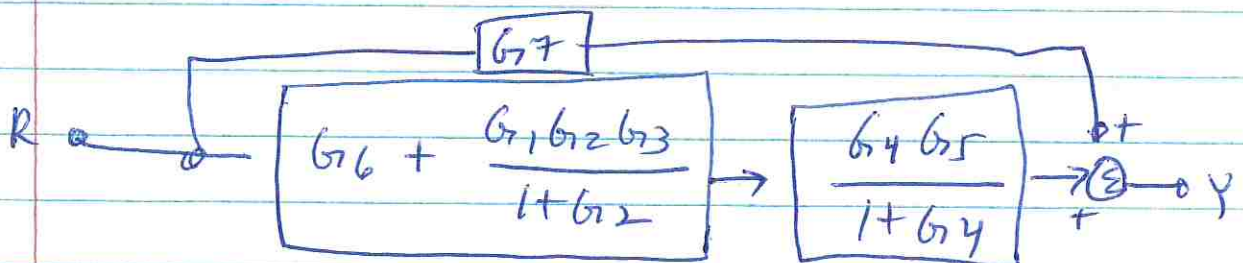 G7
R G6 + G1G2G3 / 1+G2 → G4G5 / 1+G4 → Σ Y
+
+